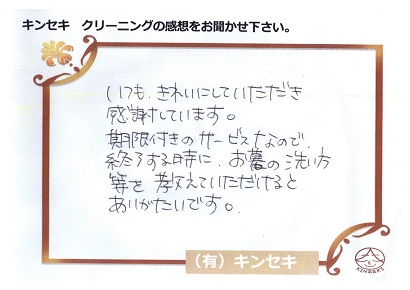 キンセキ　クリーニングの感想をお聞かせ下さい。
いつも、きれいにしていただき
感謝しています。
期限付きのサービスなので、
終了する時に、お墓の洗い方
等を教えていただけると
ありがたいです。
（有）キンセキ
KINSEKI